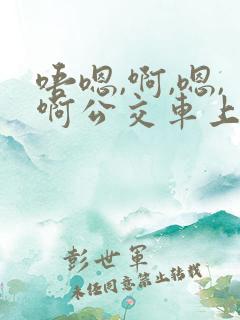 唔嗯,啊,嗯,
啊公交車上
彭世軍
未经同意禁止转载